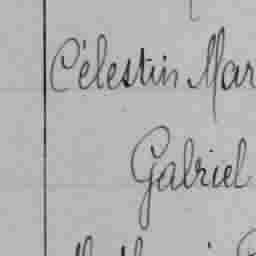 Célestin Mar
Gabriel